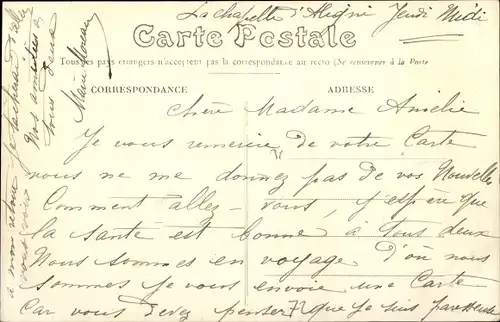 La chapelle d'Aligné Jeudi Midi
Carte Postale
Tous les pays étrangers n'acceptent pas la correspondance au recto (Se renseigner à la Poste
CORRESPONDANCE
ADRESSE
Chère Madame Amélie
Je vous remercie de votre Carte
vous ne me donnez pas de vos Nouvelles
Comment allez-vous, j'espère que
la santé est bonne à tous deux
Nous sommes en voyage d'où nous
sommes je vous envoie une Carte
Car vous devez penser que je suis paresseuse
à mon retour
Nos amitiés à
tous deux
Marie